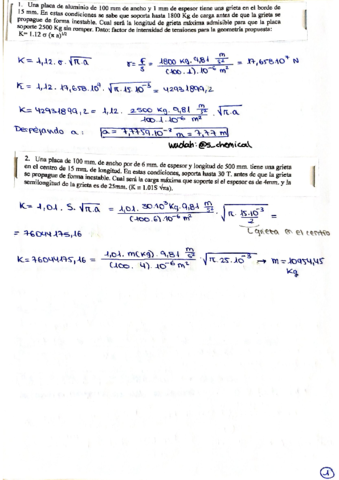 1. Una placa de aluminio de 100 mm de ancho y 1 mm de espesor tiene una grieta en el borde de
15 mm. En estas condiciones se sabe que soporta hasta 1800 Kg de carga antes de que la grieta se
propague de forma inestable. Cual será la longitud de grieta máxima admisible para que la placa
soporte 2500 Kg sin romper. Dato: factor de intensidad de tensiones para la geometría propuesta:
K= 1.12 σ (π a)^1/2
K = 1,12. σ. √π.a r = F/S = 1800 kg. 9,81 m/s² / (100.1).10⁻⁶ m² = 17,658.10⁷ N
K = 1,12. 17,658.10⁷. √π.15.10⁻³ = 42931899,2
K = 42931899,2 = 1,12. 2500 kg. 9,81 m/s² / 100.1.10⁻⁶ m² . √π.a
Despejando a: a = 7,7759.10⁻³ m = 7,77 m
wuolah: @s_chemical
2. Una placa de 100 mm. de ancho por de 6 mm. de espesor y longitud de 500 mm. tiene una grieta
en el centro de 15 mm. de longitud. En estas condiciones, soporta hasta 30 T. antes de que la grieta
se propague de forma inestable. Cual será la carga máxima que soporte si el espesor es de 4mm. y la
semilongitud de la grieta es de 25mm. (K = 1.01S √πa).
K = 1,01. S. √π.a = 1,01. 30.10³ Kg. 9,81 m/s² / (100.6).10⁻⁶ m² . √π. 15.10⁻³/2 =
grieta en el centro
= 76044175,16
K = 76044175,16 = 1,01. m(kg). 9,81 m/s² / (100. 4).10⁻⁶ m² . √π. 25.10⁻³ → m = 10954,45
Kg
1